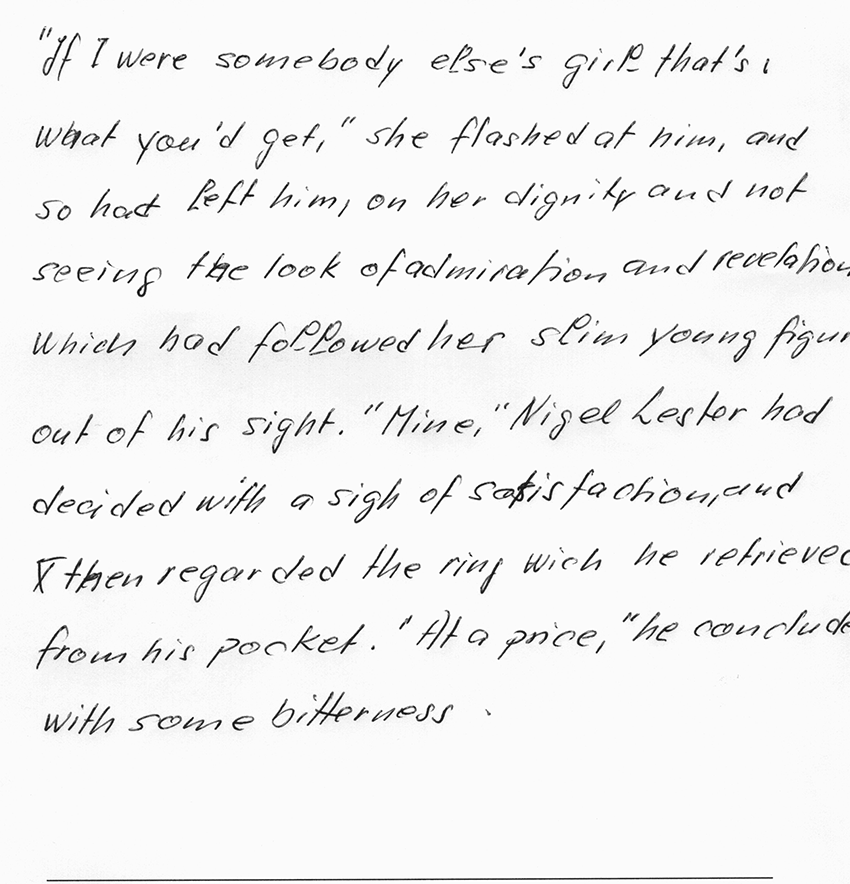 "If I were somebody else's girl that's
what you'd get," she flashed at him, and
so had left him, on her dignity and not
seeing the look of admiration and revelation
which had followed her slim young figur
out of his sight. "Mine," Nigel Lester had
decided with a sigh of satisfaction, and
then regarded the ring wich he retrieved
from his pocket. "At a price," he conclude
with some bitterness.